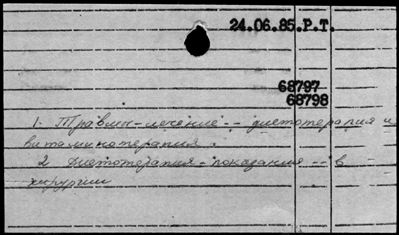 24.06.85.Р.Т.
68797
68798
1. Травмы - лечение -- диетотерапия и
витаминотерапия.
2. Диетотерапия - показания -- в
хирургии